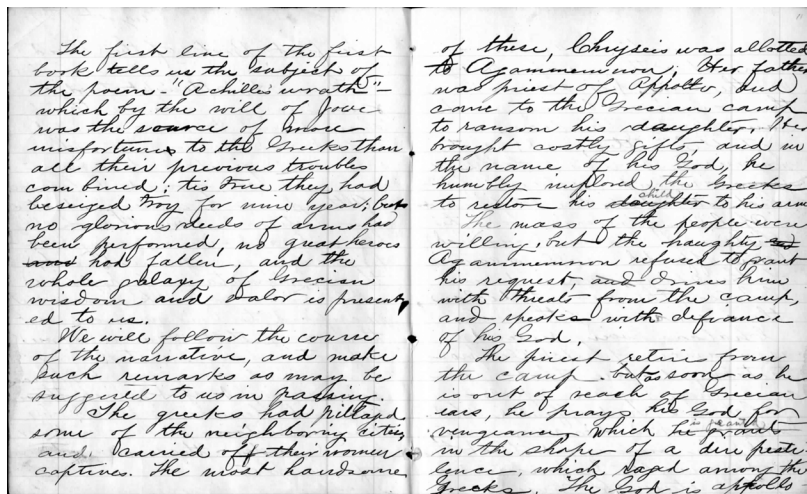 The first line of the first
book tells us the subject of
the poem - "Achilles wrath" -
which by the will of Jove
was the source of more
misfortunes to the Greeks than
all their previous troubles
combined; tis true they had
beseiged Troy for nine year; but
no glorious deeds of arms had
been performed, no great heroes
had fallen, and the
whole galaxy of Grecian
wisdom and valor is present,
ed to us.
We will follow the course
of the narrative, and make
such remarks as may be
suggested to us in passing.
The greeks had pillaged
some of the neighboring cities,
and carried off their women
captives. The most handsome
of these, Chryseis was allotted
to Agammemnon; Her father
was priest of Appollo, and
came to the Grecian camp
to ransom his daughter. He
brought costly gifts, and in
the name of his God, he
humbly implored the Greeks
to restore his daughter child to his arms
The mass of the people were
willing, but the haughty
Agammemnon refused to grant
his request, and drives him
with threats from the camp,
and speaks with defiance
of his God.
The priest retires from
the camp but as soon as he
is out of reach of Grecian
ears, he prays his God for
vengeance, which he grants
in the shape of a dire pesti-
lence, which raged among the
Greeks. The God is appollo-